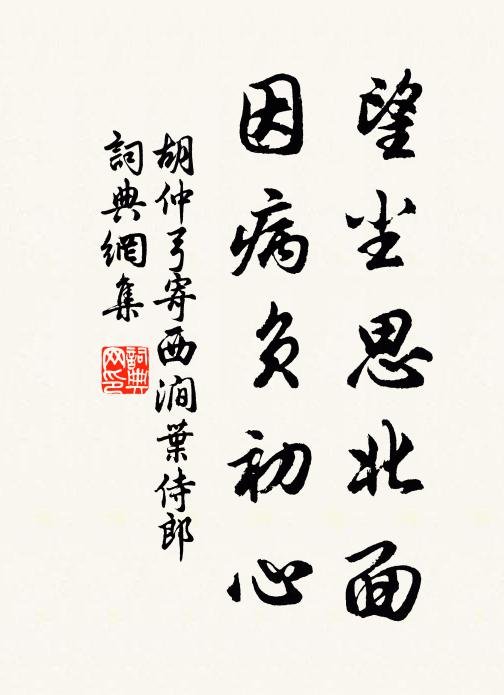 望尘思北面
因病负初心
胡仲弓寄西涧葉侍郎
詞典網集
詞典网印